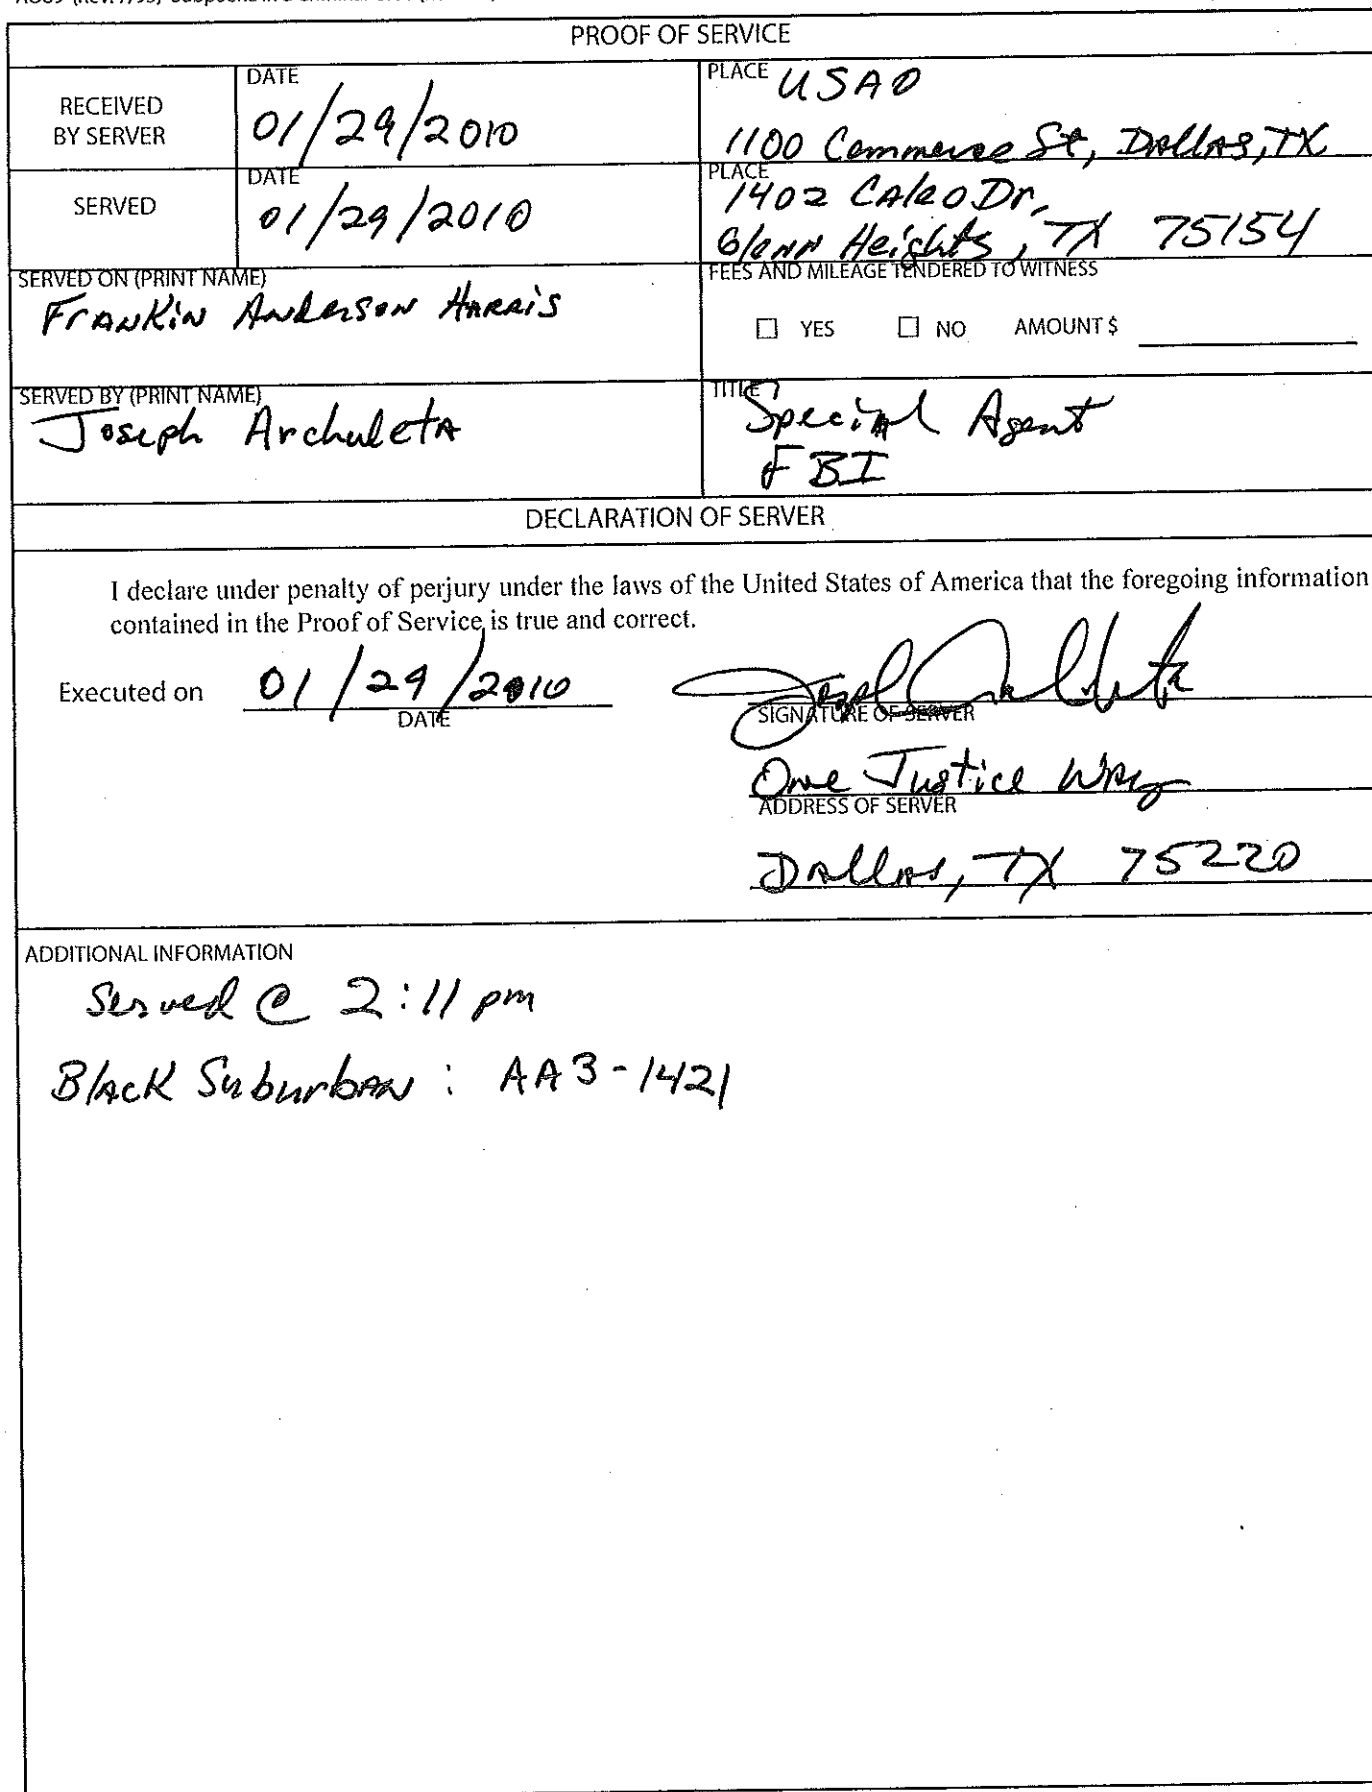 PROOF OF SERVICE
RECEIVED
BY SERVER
DATE
01/29/2010
PLACE USAO
1100 Commerce St, Dallas, TX
SERVED
DATE
01/29/2010
PLACE
1402 Dr,
Glenn Heights, TX 75154
SERVED ON (PRINT NAME)
Frankin Anderson Harris
FEES AND MILEAGE TENDERED TO WITNESS
☐ YES ☐ NO AMOUNT $
SERVED BY (PRINT NAME)
Joseph Archuleta
TITLE
Special Agent
FBI
DECLARATION OF SERVER
I declare under penalty of perjury under the laws of the United States of America that the foregoing information
contained in the Proof of Service is true and correct.
Executed on 01/29/2010
DATE
SIGNATURE OF SERVER
One Justice Way
ADDRESS OF SERVER
Dallas, TX 75220
ADDITIONAL INFORMATION
Served @ 2:11 pm
Black Suburban : AA3-1421